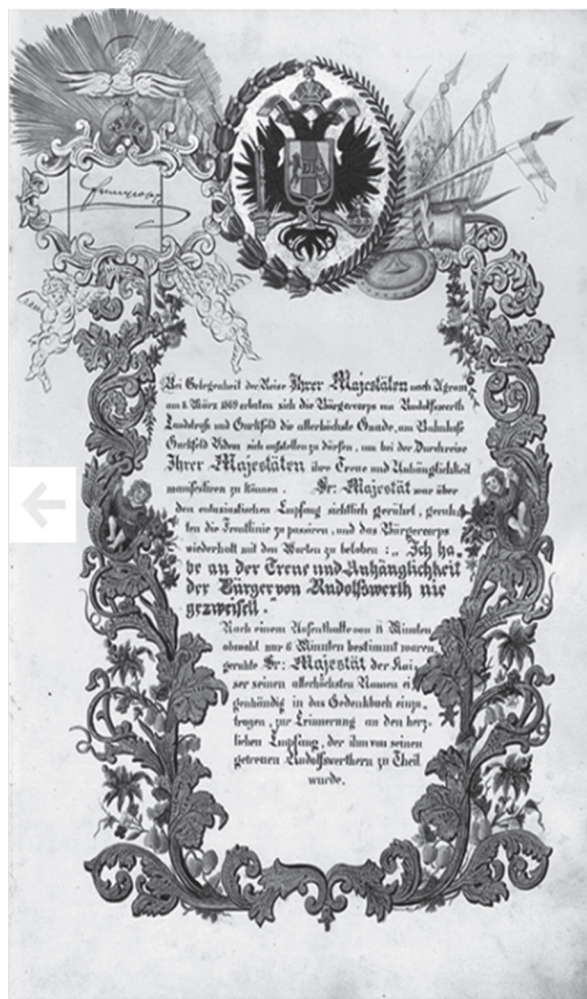 Bei Gelegenheit der Reise Ihrer Majestäten nach Agram
am 8. März 1869 erbaten sich die Bürgercorps von Rudolfswerth
Landstraß und Gurkfeld die allerhöchste Gnade, am Bahnhofe
Gurkfeld Videm sich aufstellen zu dürfen, um bei der Durchreise
Ihrer Majestäten ihre Treue und Anhänglichkeit
manifestiren zu können. Se: Majestät war über
den entusiastischen Empfang sichtlich gerührt, geruh-
ten die Frontlinie zu passiren, und das Bürgercorps
wiederholt mit den Worten zu beloben: „Ich ha-
be an der Treue und Anhänglichkeit
der Bürger von Rudolfswerth nie
gezweifelt."
Nach einem Aufenthalte von 11 Minuten
obwohl nur 6 Minuten bestimmt waren,
geruhte Se: Majestät der Kai-
ser seinen allerhöchsten Namen ei-
genhändig in das Gedenkbuch einzu-
tragen, zur Erinnerung an den herz-
lichen Empfang, der ihm von seinen
getreuen Rudolfswerthern zu Theil
wurde.